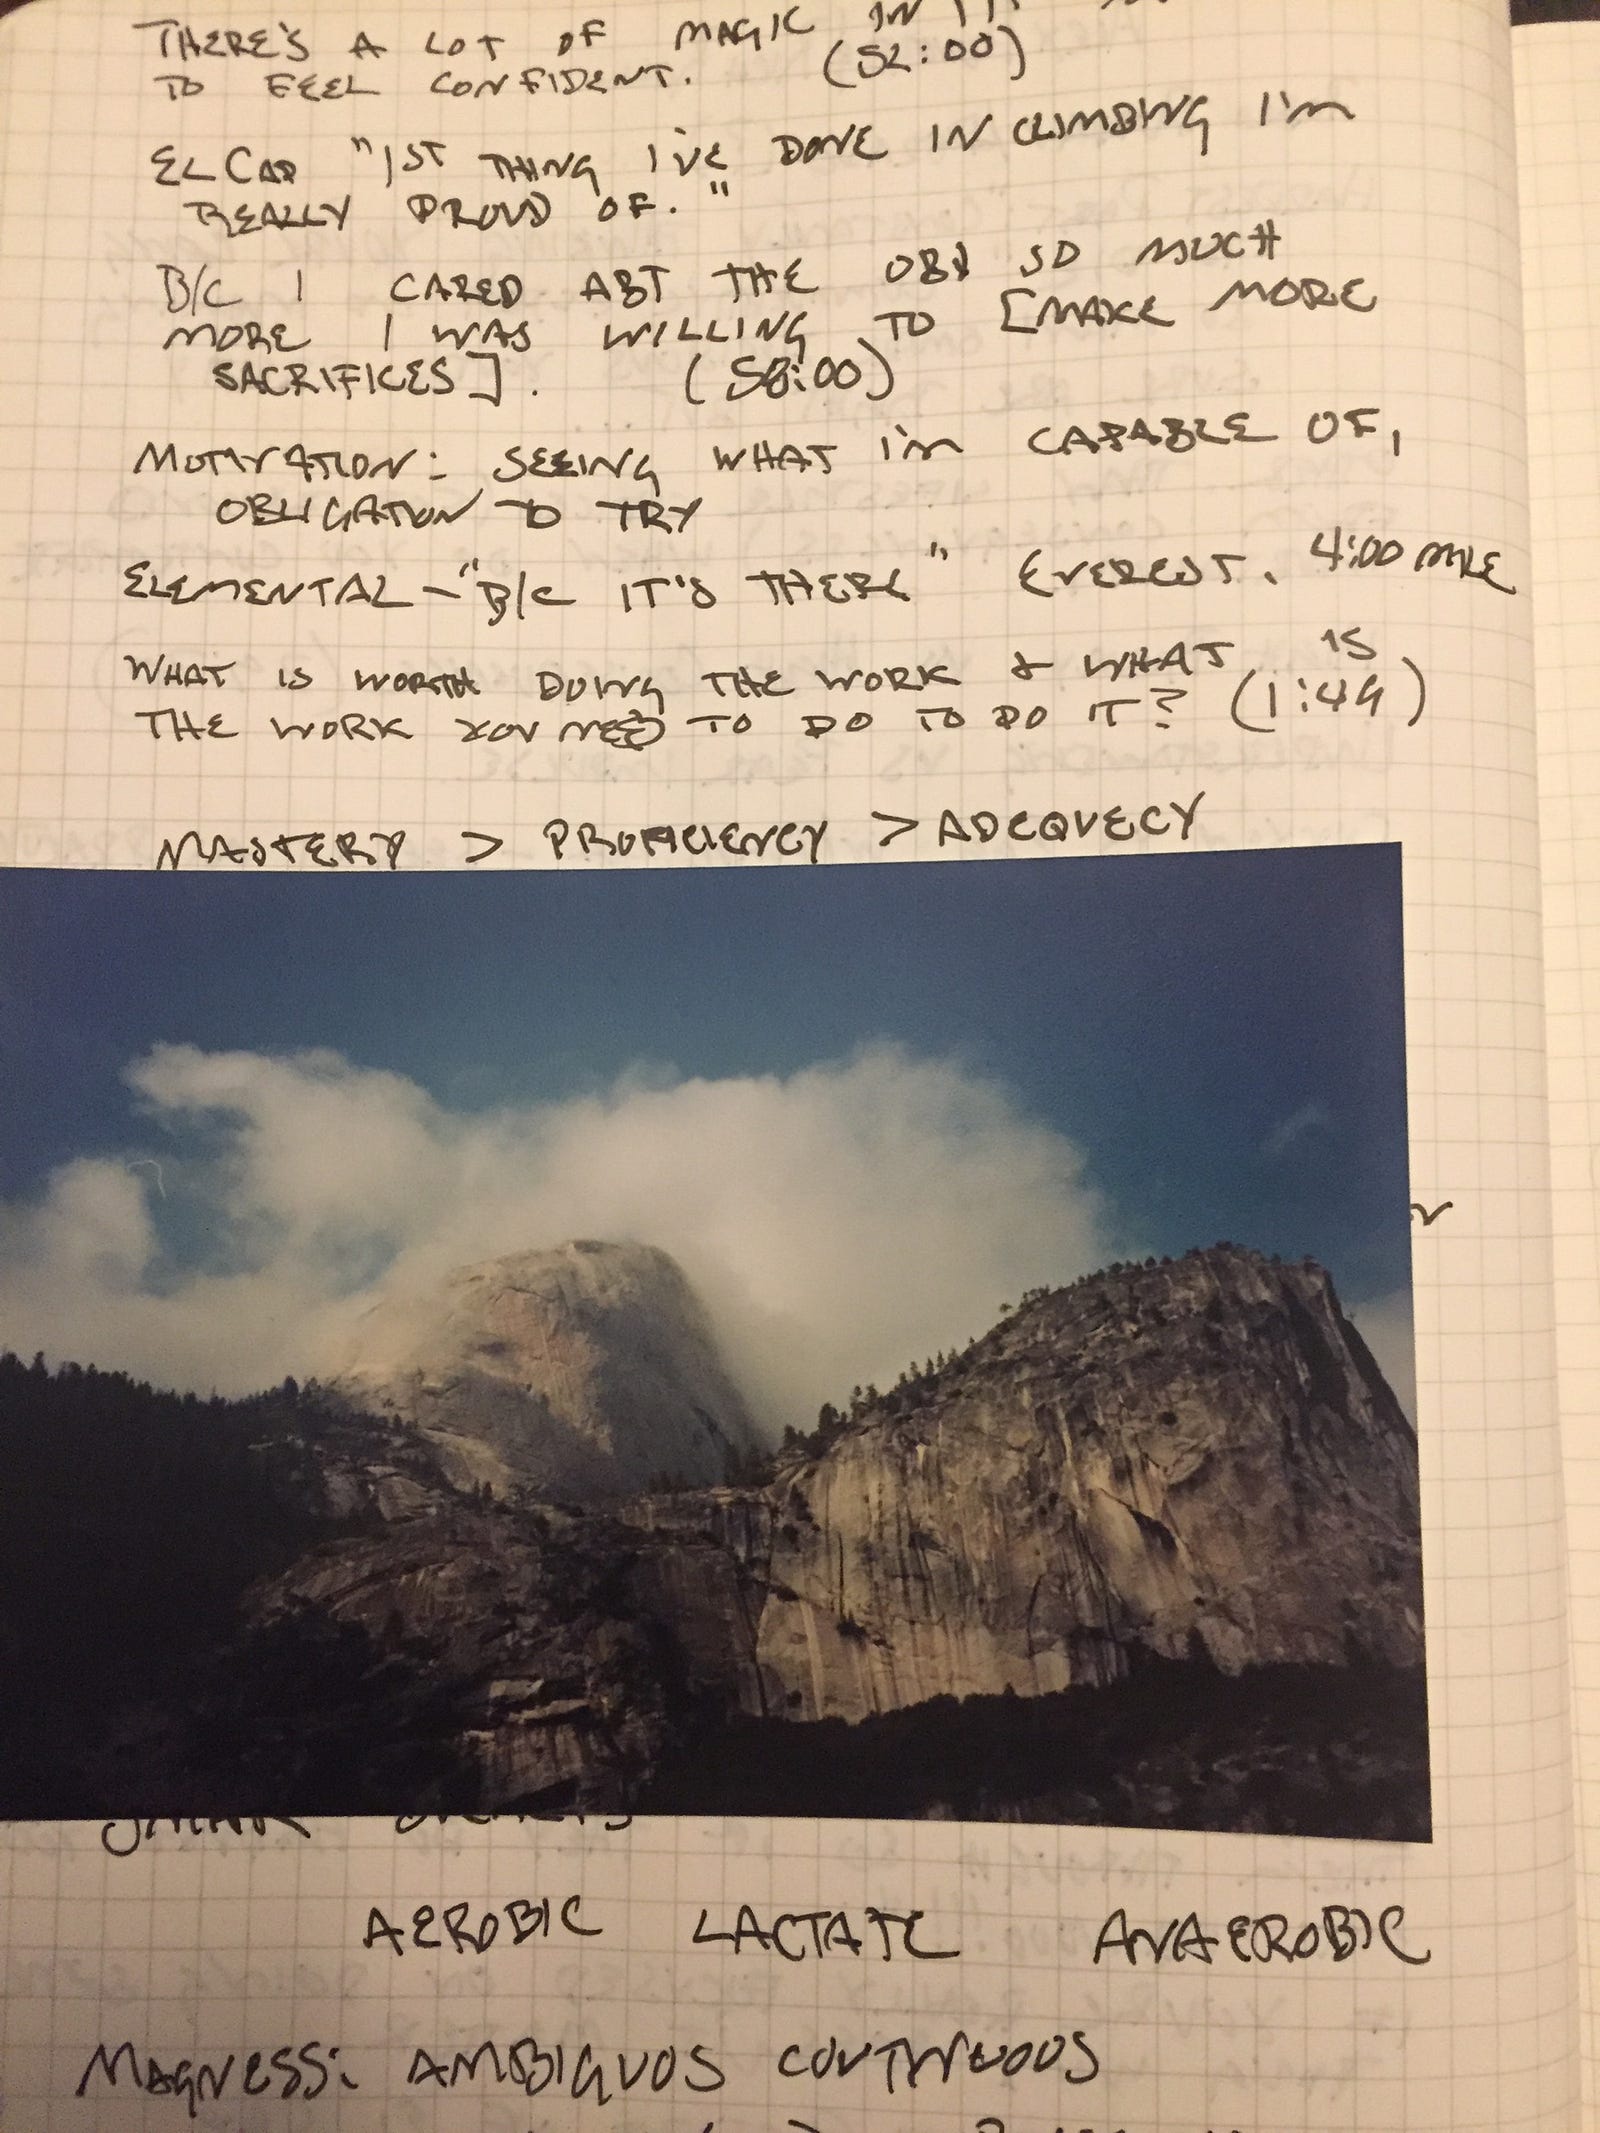 THERE'S A LOT OF MAGIC IN
TO FEEL CONFIDENT. (52:00)
EL CAP "1ST THING I'VE DONE IN CLIMBING I'M
REALLY PROUD OF."
B/C I CARED ABT THE OBJ SO MUCH
MORE I WAS WILLING TO [MAKE MORE
SACRIFICES]. (58:00)
MOTIVATION: SEEING WHAT I'M CAPABLE OF,
OBLIGATION TO TRY
ELEMENTAL - "B/C IT'S THERE" EVEREST. 4:00 MILE
WHAT IS WORTH DOING THE WORK & WHAT IS
THE WORK YOU NEED TO DO TO DO IT? (1:49)
MASTERY > PROFICIENCY > ADEQUECY
AEROBIC LACTATE ANAEROBIC
MAGNESS: AMBIGUOS CONTINUOUS